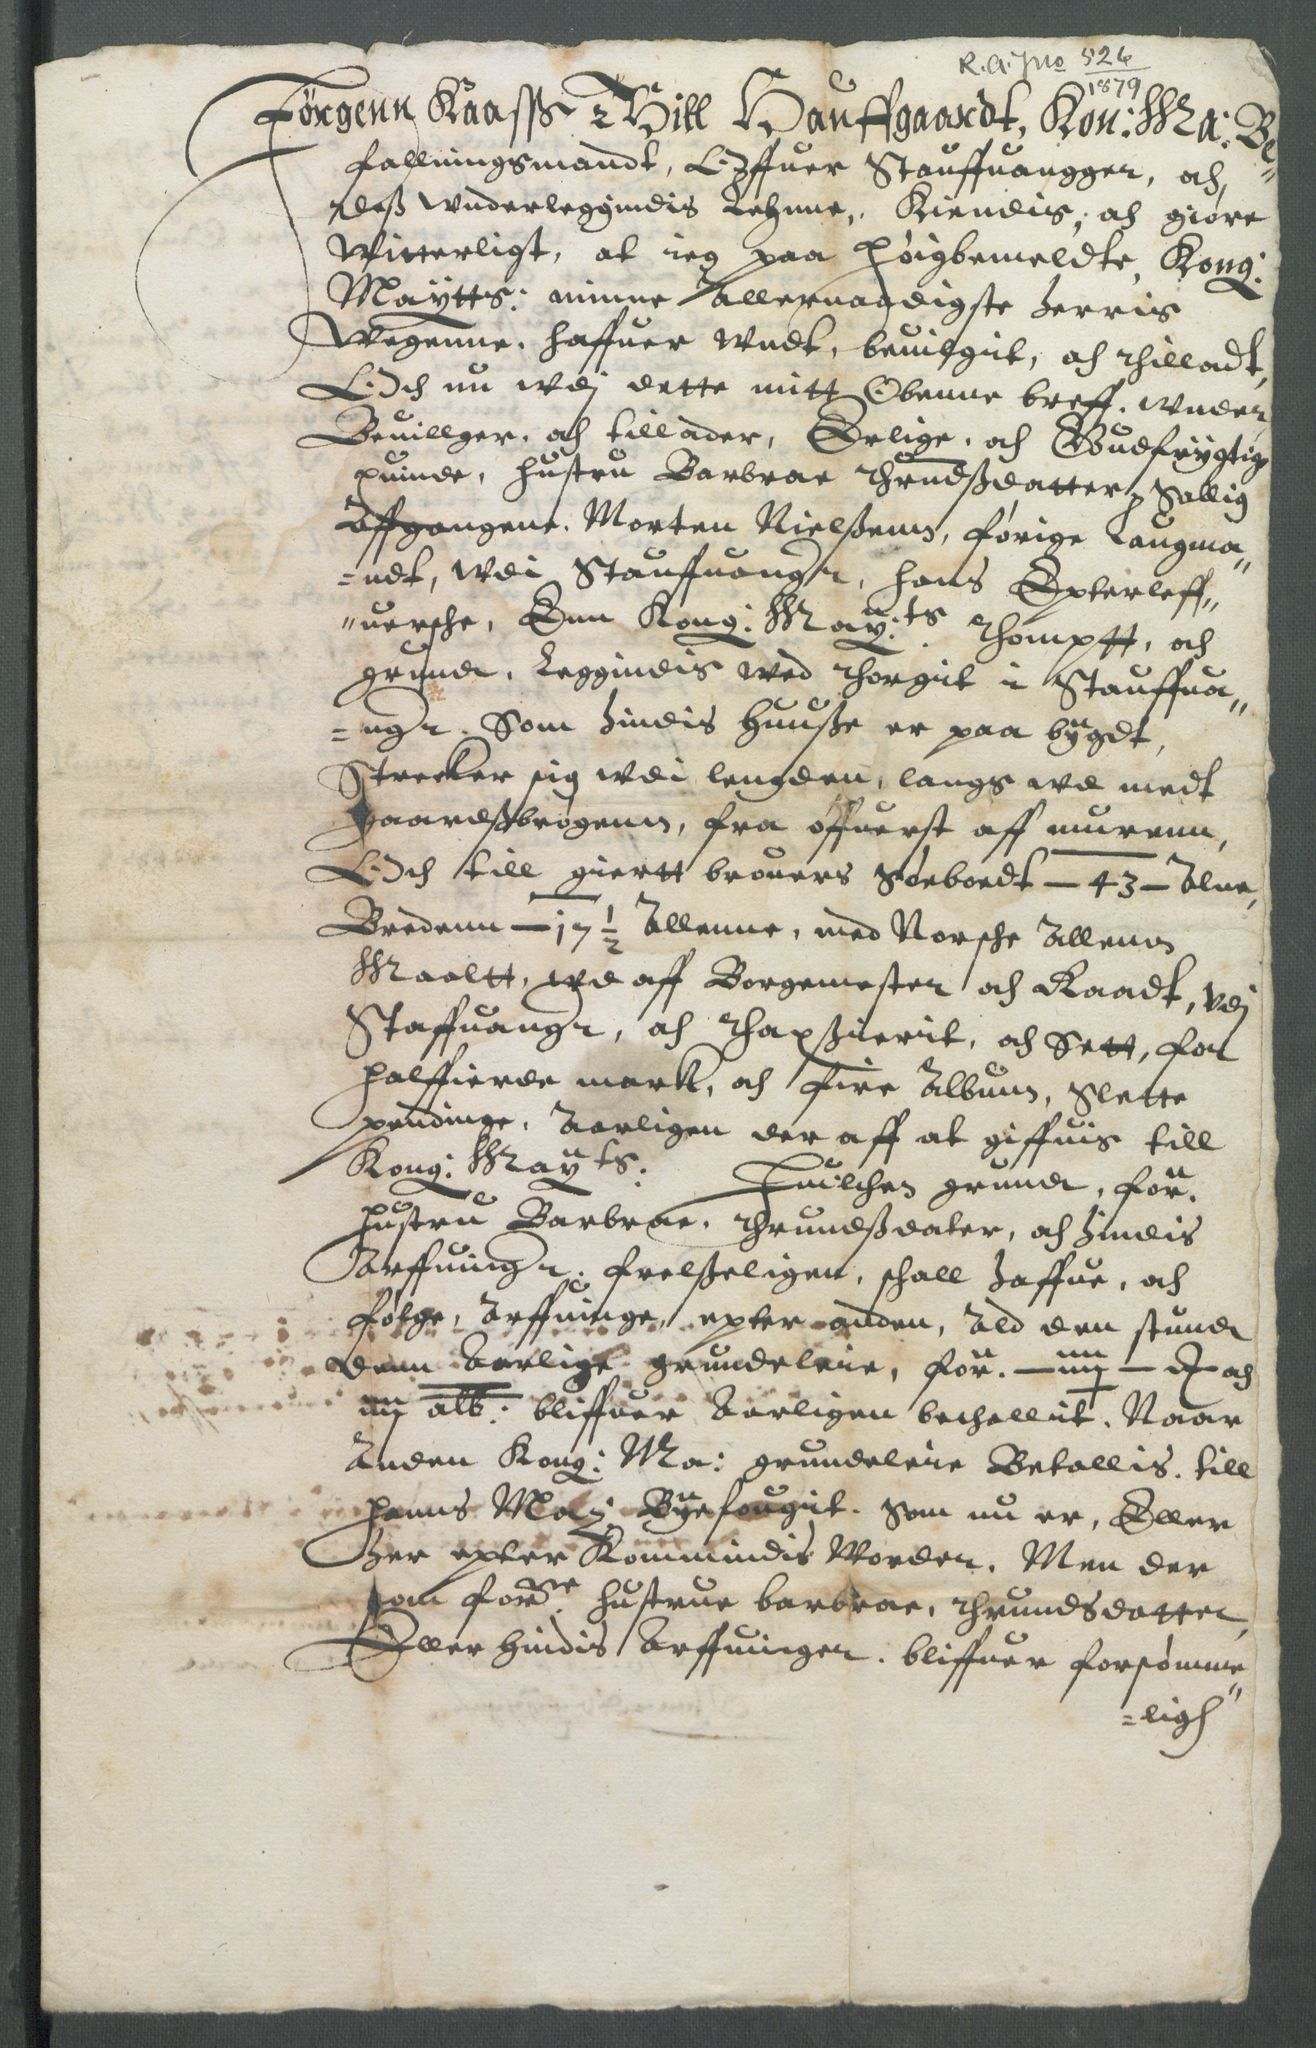 R.A. Jno 526
1879
Jørgenn Kaass Till Hauffgaardt, Kon: Ma: Be„
falningsmandt, Offuer Stauffuangger, och,
dess wnderleggindis Lehnne, Kiendis, och giøre
Witterligt, at ieg paa høigbemeldte, Kong:
Maÿtts: minne Allernaadigste herris
Wegenne, haffuer wndt, beuilgit, och thilladt,
Och nu wdj dette mitt Obenne breff. wnder,
Beuillger, och tillader, Erlige, och Gudfrÿgtige
quinde, hustru Barbrae thrundssdatter, Sallig
Affgangene, Morten Nielssenn, førige Laugma„
=ndt, wdi Stauffuanger, hans Epterleff„
„uersche, Enn Kong: Maÿ:ts thomptt, och
grundt, Leggindis wed thorgit i Stauffua„
=nger. Som hindis huusse er paa bÿgdt,
Strecker sig wdi lengden, langs wd medt
gaardssbrøgenn, fra øffuerst aff murenn,
Och till giertt brouers Søeboedt — 43 — Alne,
Bredenn — 17 1/2 Allenne, med Norsche Allenn
Maaltt, wd aff Borgemester och Raadt, vdj
Staffuanger, och thaxserit, och Sett, for
halffierde mark, och fire Albums, Slette
pendinge, Aarligen der aff at giffuis till
Kong: Maÿts: Huilchen grundt, for:
hustru Barbrae. thrundssdater, och hindis
Arffuinger. frelsseligen, schall haffue, och
følge, Arffuinge, epter anden, Ald den stundt
denn Aarlige grundeleie, for: — iiij — och
iiij alb: bliffuer Aarligen bethallit. Naar
Anden Kong: Ma: grundeleie Betallis. till
hanns Maj: Bÿefougit. som nu er, Eller
her epter Kommindis Worder. Men der
som forne: hustrue barbrae, thrundsdatter,
Eller hindis Arffuinger. bliffuer forsømme„
=ligh